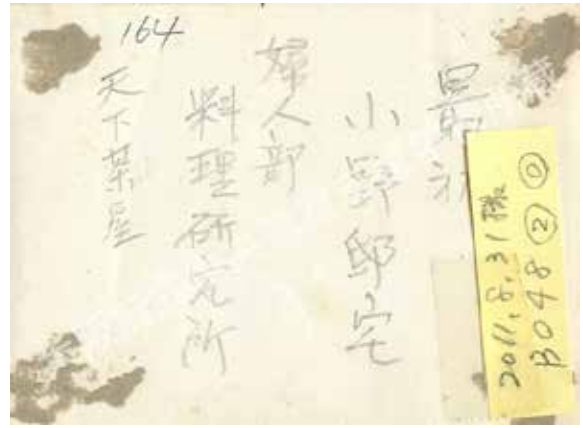 164
最
小野邸宅
婦人部
料理研究所
天下茶屋
2011.8.31
B048②①